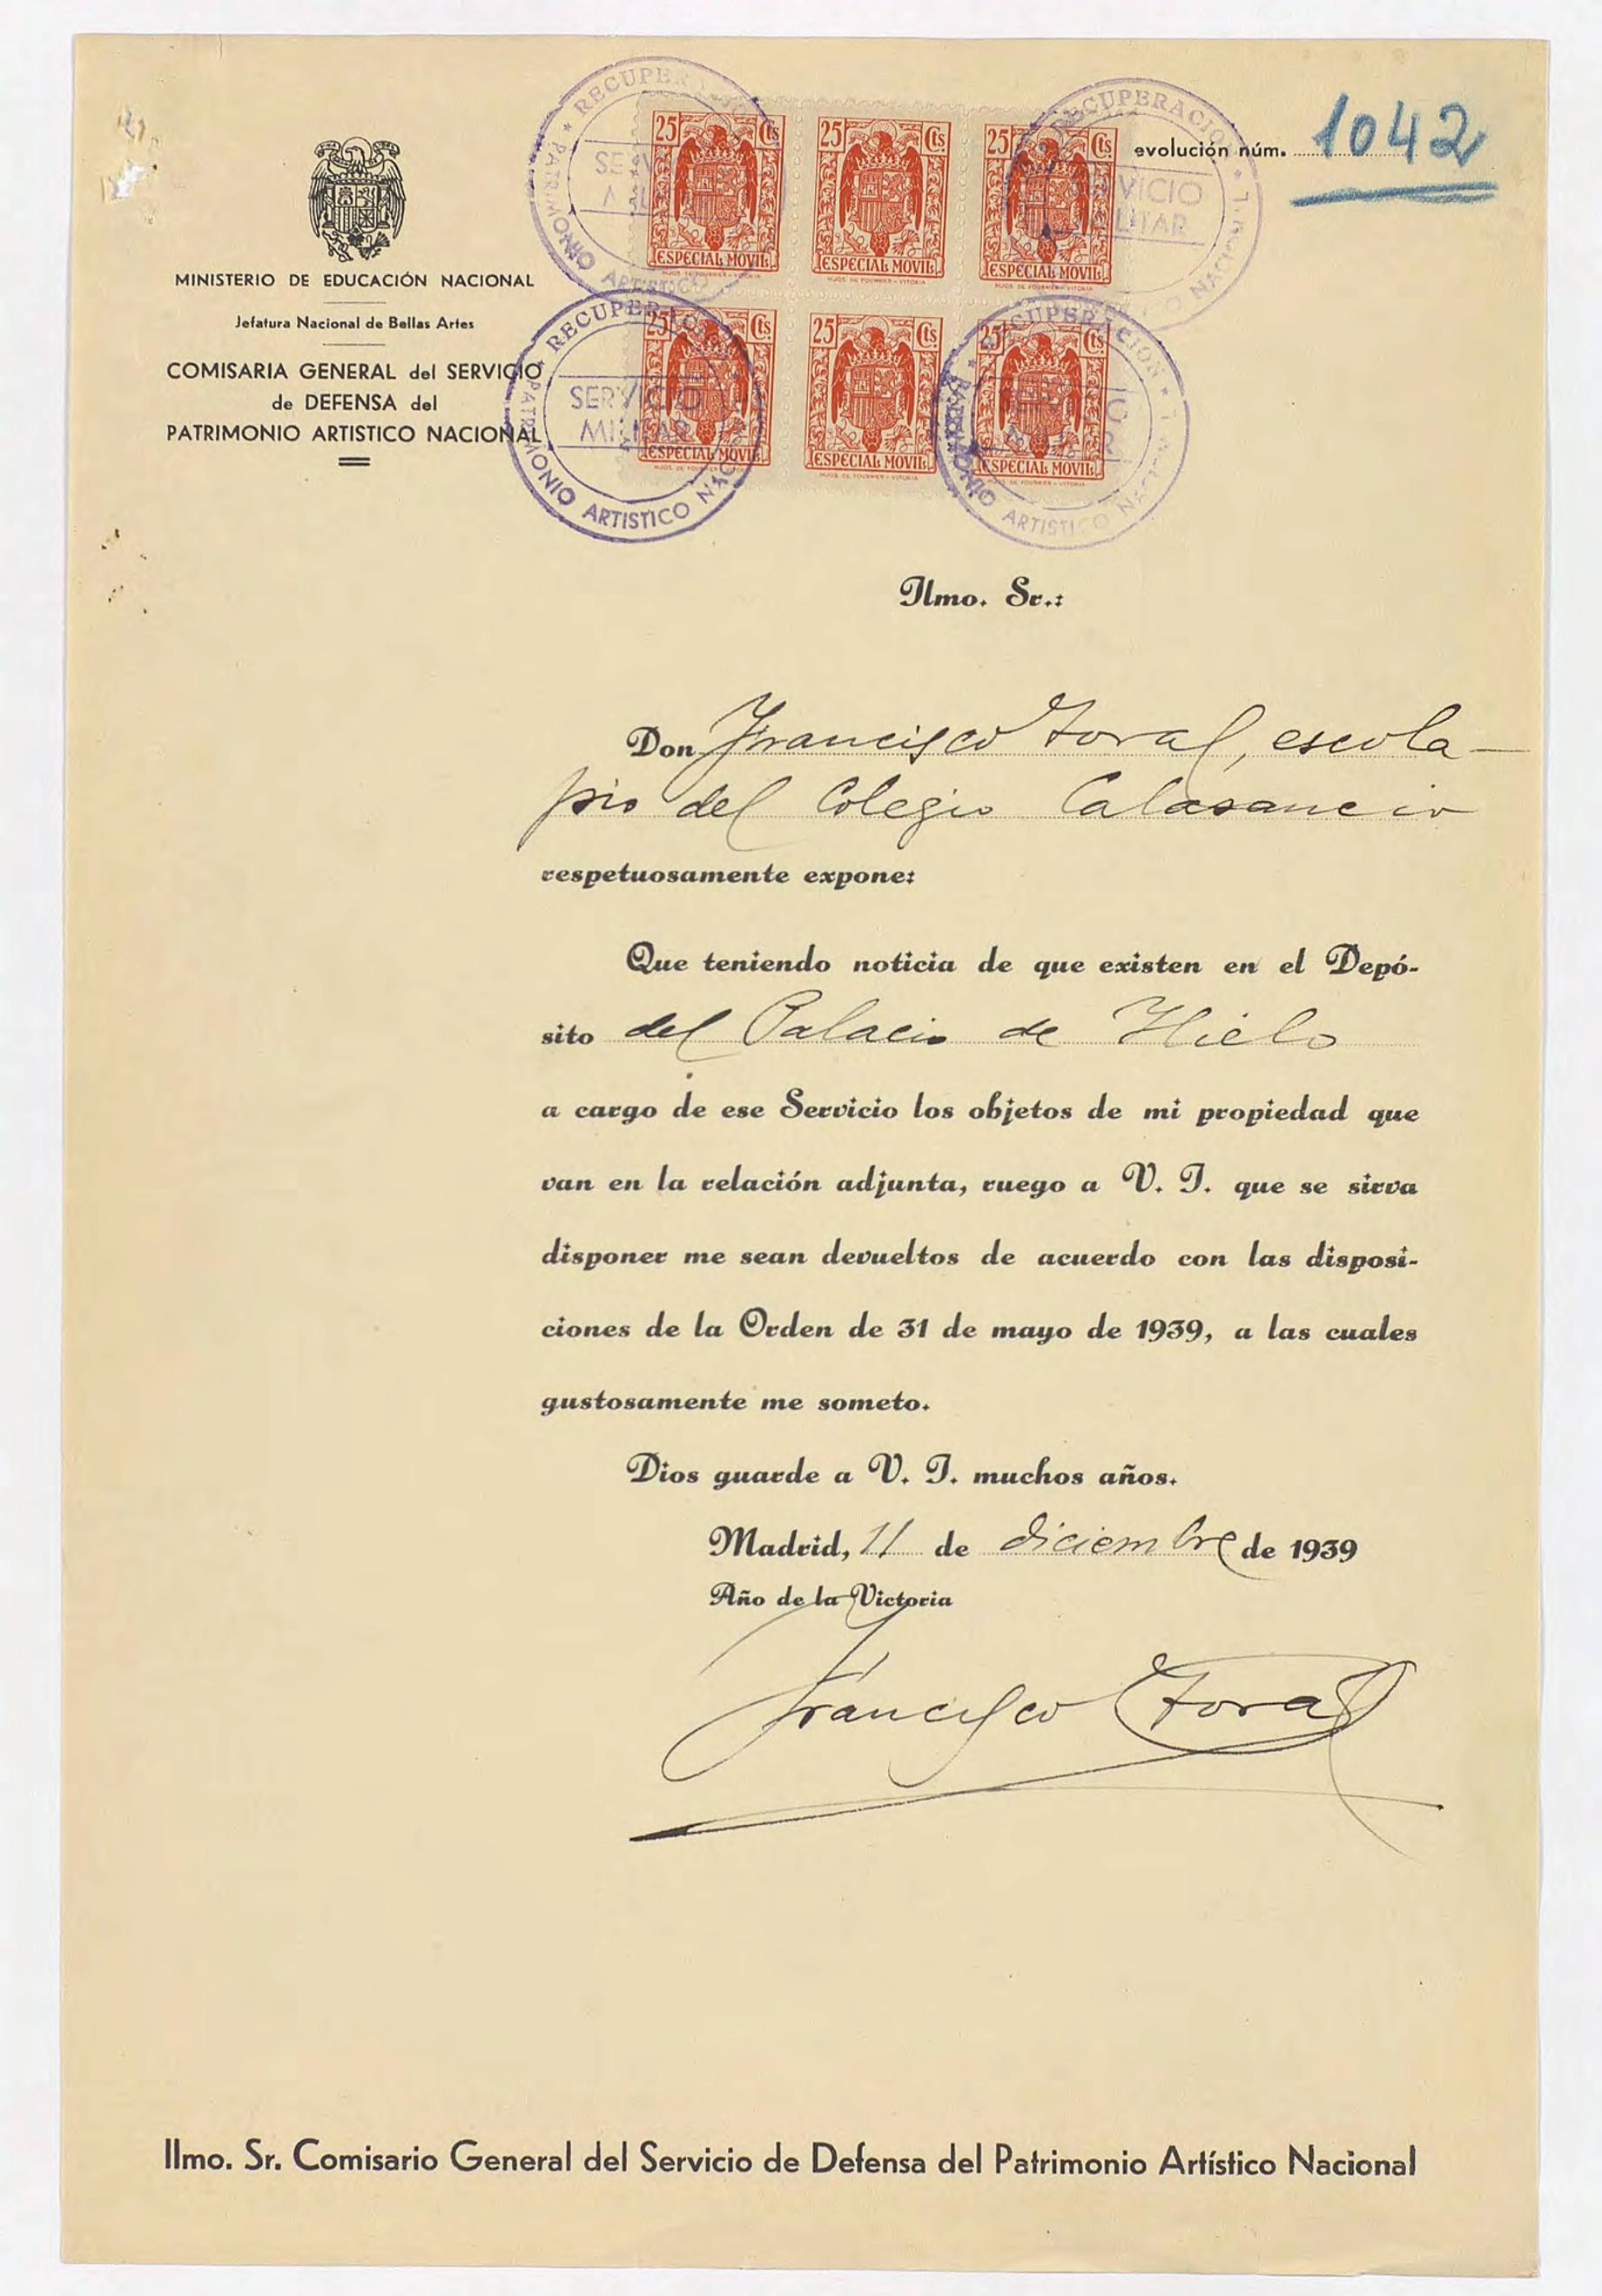 evolución núm. 1042
MINISTERIO DE EDUCACIÓN NACIONAL
Jefatura Nacional de Bellas Artes
COMISARIA GENERAL del SERVICIO
de DEFENSA del
PATRIMONIO ARTISTICO NACIONAL
25 Cts
ESPECIAL MOVIL
HIJOS DE FOURNIER - VITORIA
25 Cts
ESPECIAL MOVIL
HIJOS DE FOURNIER - VITORIA
25 Cts
ESPECIAL MOVIL
HIJOS DE FOURNIER - VITORIA
25 Cts
ESPECIAL MOVIL
HIJOS DE FOURNIER - VITORIA
25 Cts
ESPECIAL MOVIL
HIJOS DE FOURNIER - VITORIA
25 Cts
ESPECIAL MOVIL
HIJOS DE FOURNIER - VITORIA
RECUPERACION
PATRIMONIO ARTISTICO NACIONAL
SERVICIO
MILITAR
Ilmo. Sr.:
Don Francisco Toral, escola-
pio del Colegio Calasancio
respetuosamente expone:
Que teniendo noticia de que existen en el Depó-
sito del Palacio de Hielo
a cargo de ese Servicio los objetos de mi propiedad que
van en la relación adjunta, ruego a V. I. que se sirva
disponer me sean devueltos de acuerdo con las disposi-
ciones de la Orden de 31 de mayo de 1939, a las cuales
gustosamente me someto.
Dios guarde a V. I. muchos años.
Madrid, 11 de diciembre de 1939
Año de la Victoria
Francisco Toral
Ilmo. Sr. Comisario General del Servicio de Defensa del Patrimonio Artístico Nacional